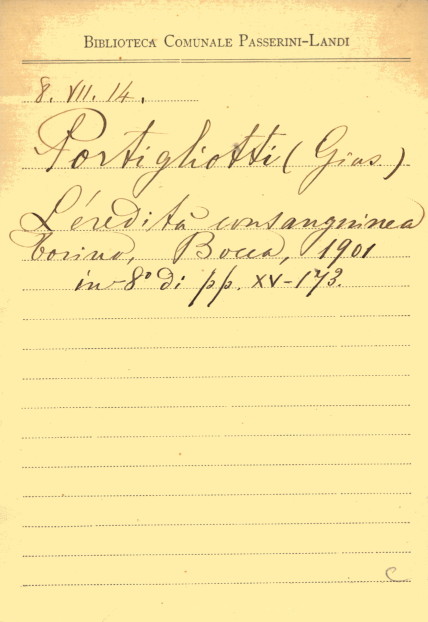 BIBLIOTECA COMUNALE PASSERINI-LANDI
8. VII. 14.
Portigliotti (Gius.)
L'eredità consanguinea
Torino, Bocca, 1901
in-8º di pp. XV-173.
C